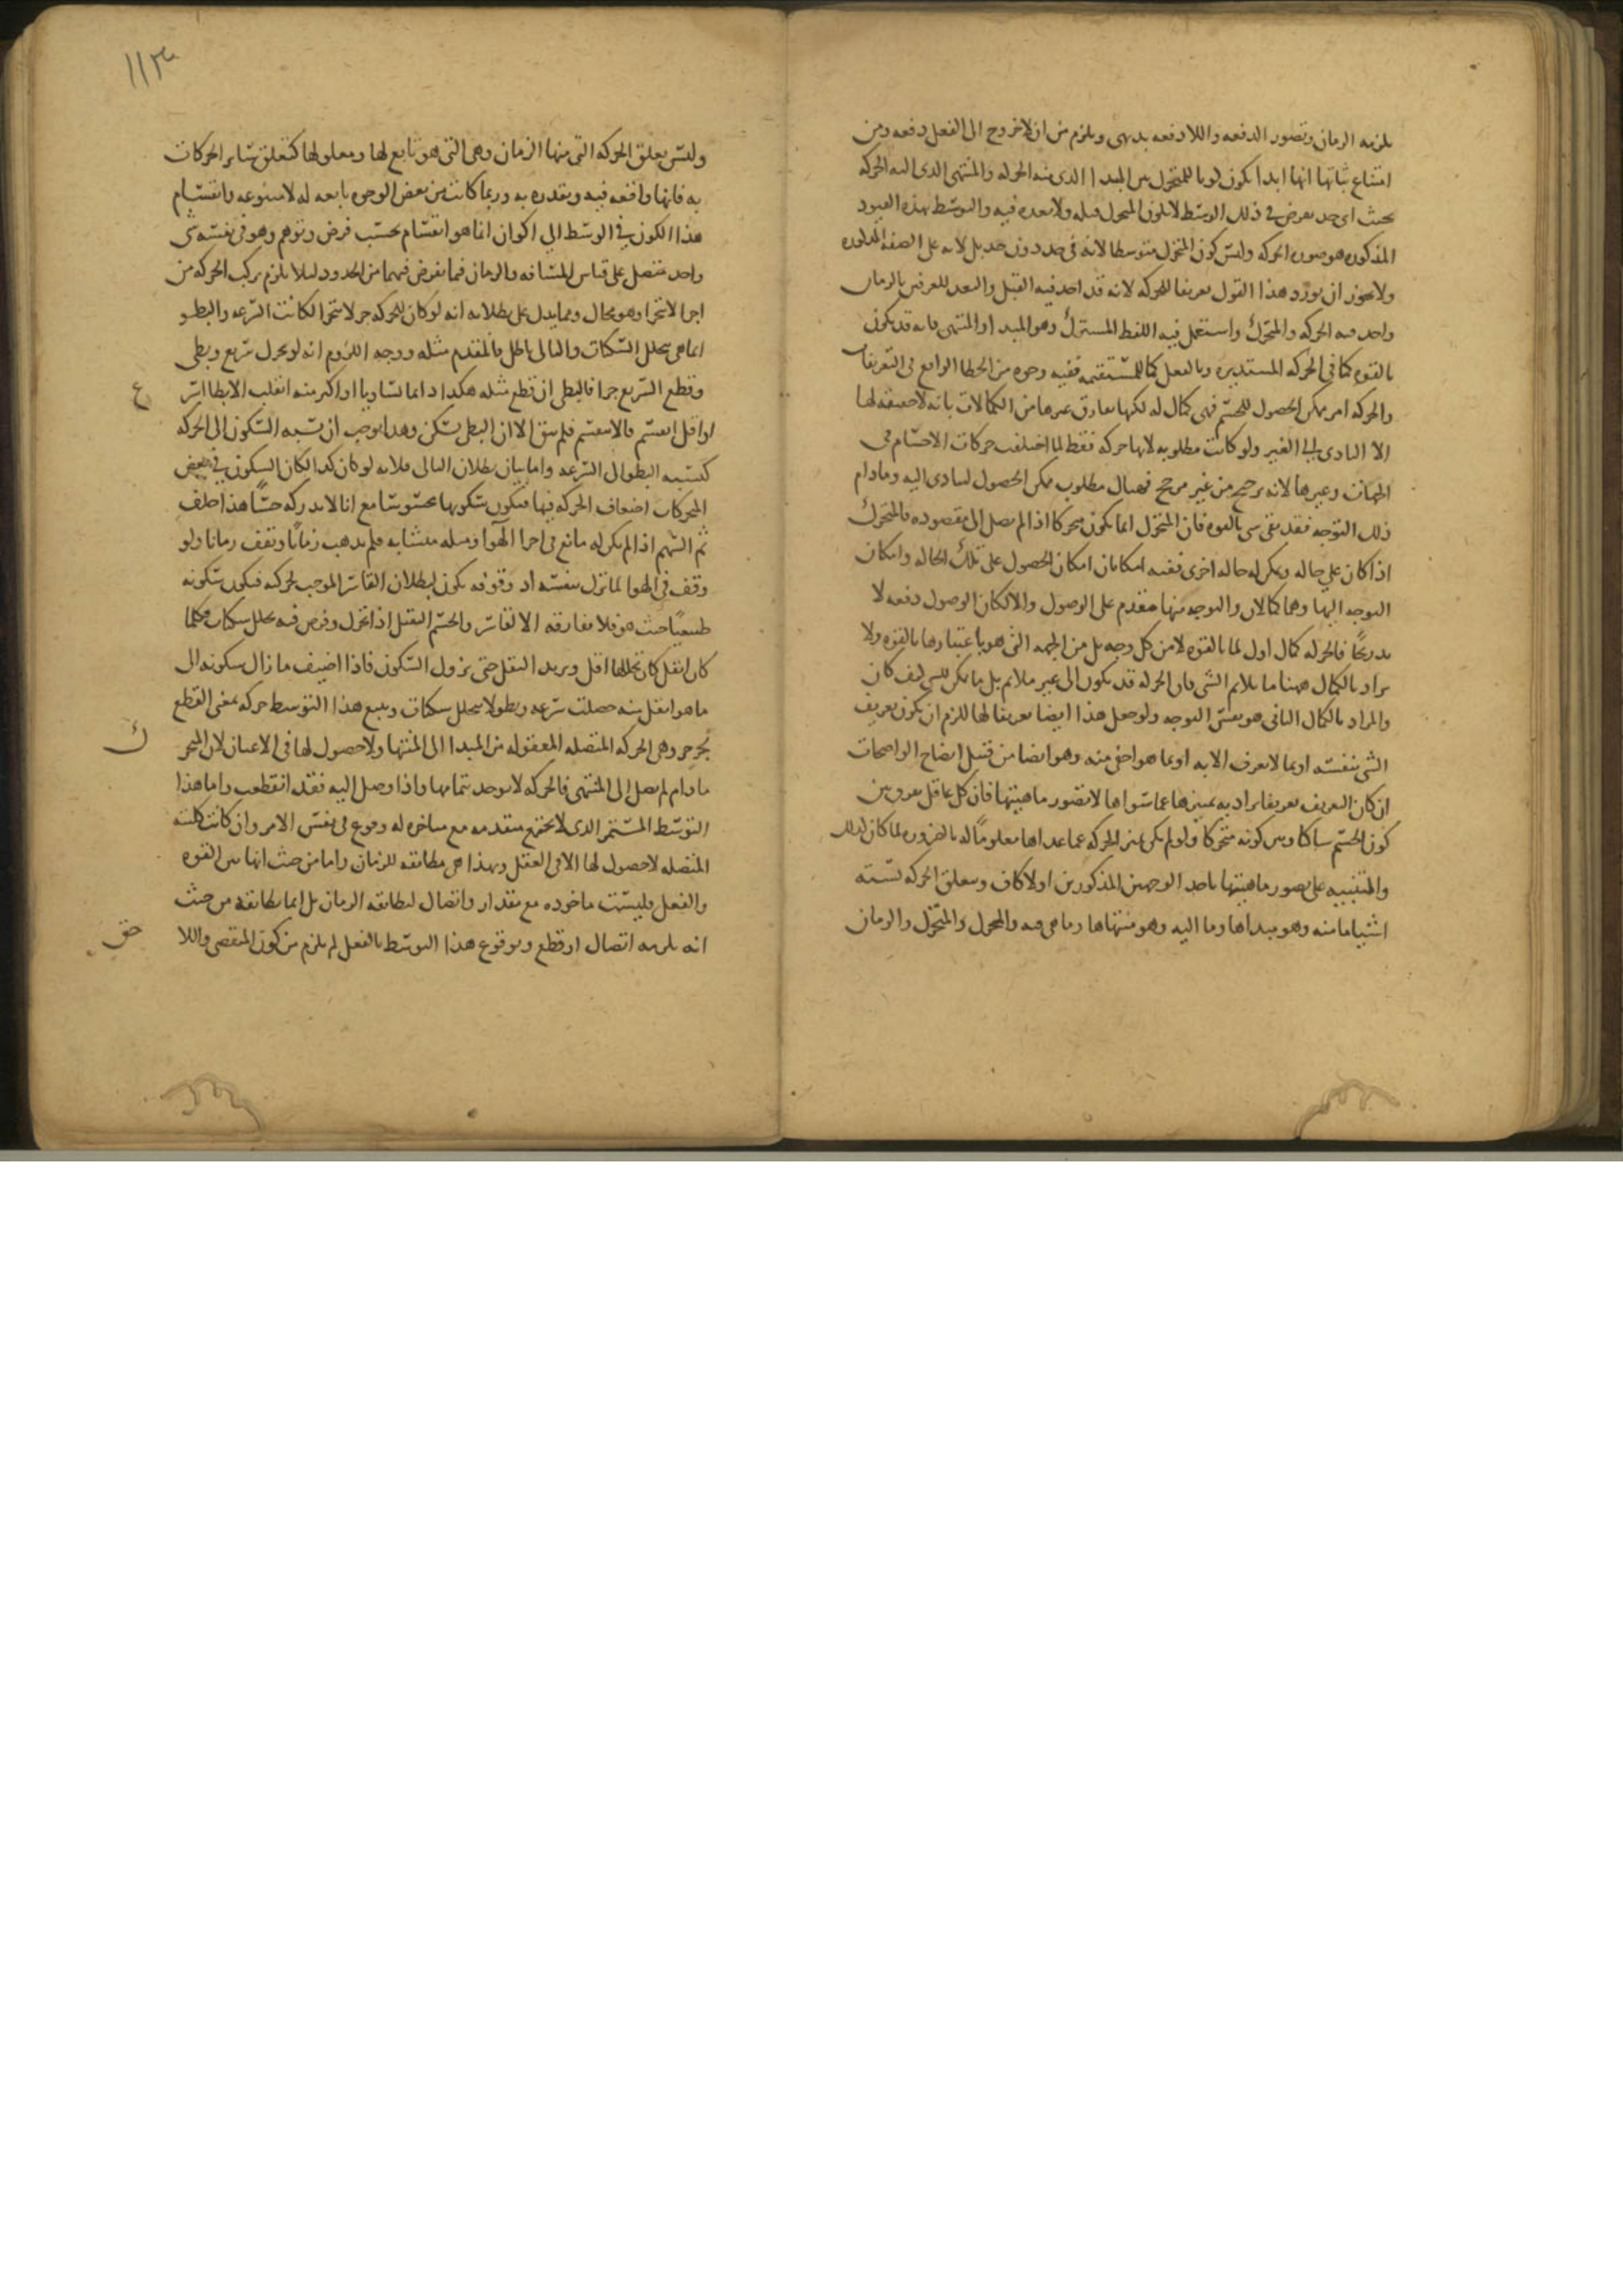 يلزمه الزمان وتصور الدفعه واللا دفعه بديهى ويلزم من ان لا خروج الى الفعل دفعه ومن
امتناع ثباتها انها ابدا يكون لونا للمتحرك بين المبدا الذى منه الحركه والمنتهى الذى اليه الحركه
بحيث اى حد يعرض فى ذلك الوسط لا يكون المتحرك قبله ولا بعده فيه والتوسط بهذه القيود
المذكوره هو صوره الحركه وليس كون المتحرك متوسطا لانه فى حد دون حد بل لانه على الصفه المذكوره
ولا يجوز ان يورد هذا القول تعريفا للحركه لانه قد اخذ فيه القبل والبعد المعرفين بالزمان
واخذ فيه الحركه والمتحرك واستعمل فيه اللفظ المشترك وهو المبدا والمنتهى فانه قد يكون
بالقوه كما فى الحركه المستديره وبالفعل كما للمستقيمه ففيه وجوه من الخطا الواقع فى التعريفات
والحركه امر ممكن الحصول للجسم فهى كمال له لكنها تفارق غيرها من الكمالات بانه لا حقيقه لها
الا التادى الى الغير ولو كانت مطلوبه لانها حركه فقط لما اختلفت حركات الاجسام فى
الجهات وغيرها لانه ترجيح من غير مرجح فهناك مطلوب ممكن الحصول ليتادى اليه وما دام
ذلك التوجه فقد بقى شى بالقوه فان المتحرك انما يكون متحركا اذا لم يصل الى مقصوده فالمتحرك
اذا كان على حاله ويمكن له حاله اخرى ففيه امكانان امكان الحصول على تلك الحاله وامكان
التوجه اليها وهما كمالان والتوجه منهما متقدم على الوصول والا لكان الوصول دفعه لا
تدريجا فالحركه كمال اول لما بالقوه لا من كل وجه بل من الجهه التى هو باعتبارها بالقوه ولا
يراد بالكمال ههنا ما يلائم الشى فان الحركه قد يكون الى غير ملائم بل ما يمكن للشى كيف كان
والمراد بالكمال الثانى هو نفس التوجه ولو جعل هذا ايضا تعريفا لها للزم ان يكون تعريف
الشى بنفسه او بما لا يعرف الا به او بما هو اخفى منه وهو ايضا من قبيل ايضاح الواضحات
ان كان التعريف تعريفا يراد به تميزها عما سواها لا تصور ماهيتها فان كل عاقل يعرف بين
كون الجسم ساكنا وبين كونه متحركا ولو لم يكن تميز الحركه عما عداها معلوما له بالضروره لما كان كذلك
والتنبيه على تصور ماهيتها باحد الوجهين المذكورين اولا كاف ويتعلق الحركه بسته
اشيا ما منه وهو مبداها وما اليه وهو منتهاها وما هى فيه والمحرك والمتحرك والزمان
١١٣
وليس يعلق الحركه التى منها الزمان وهى التى هو تابع لها ومعلولها كتعلق سائر الحركات
به فانها واقعه فيه ومقدره به وربما كانت من بعض الوجوه تابعه له لا متبوعه وانقسام
هذا الكون فى الوسط الى اكوان انما هو انقسام بحسب فرض وتوهم وهو فى نفسه شى
واحد متصل على قياس المسافه والزمان فما يفرض فيهما من الحدود لئلا يلزم تركب الحركه من
اجزا لا تتجزا وهو محال ومما يدل على بطلانه انه لو كان للحركه جز لا يتجزا لكانت السرعه والبطو
انما هى بتخلل السكنات والتالى باطل فالمقدم مثله ووجه اللزوم انه لو تحرك سريع وبطى
وقطع السريع جزا فالبطى ان قطع مثله هكذا دائما تساويا او اكثر منه انقلب الابطا اسرع
او اقل انقسم ما لا ينقسم فلم يبق الا ان البطى سكن وهذا يوجب ان نسبه السكون الى الحركه
كنسبه البطو الى السرعه واما بيان بطلان التالى فلانه لو كان كذا لكان السكون فى بعض
المحركات اضعاف الحركه فيها فيكون سكونها محسوسا مع انا لا ندركه حسا هذا خلف
ثم السهم اذا لم يكن له مانع فى اجزا الهوا وميله متشابه فلم يذهب زمانا ويقف زمانا ولو
وقف فى الهوا لما نزل بنفسه اذ وقوفه يكون لبطلان القاسر الموجب لحركته فيكون سكونه
طبيعيا حيث هو فلا يفارقه الا لقاسر والجسم الثقيل اذا تحرك وفرض فيه تخلل سكنات فكلما
كان اثقل كان تخللها اقل ويزيد الثقل حتى يزول السكون فاذا اضيف ما زال سكونه الى
ما هو اثقل منه حصلت سرعه وبطو لا بتخلل سكنات ويتبع هذا التوسط حركه بمعنى القطع
لجزجز وهى الحركه المتصله المعقوله من المبدا الى المنتها ولا حصول لها فى الاعيان لان المتحرك
ما دام لم يصل الى المنتهى فالحركه لا يوجد بتمامها واذا وصل اليه فقد انقطعت واما هذا
التوسط المستمر الذى لا يجتمع متقدمه مع متاخره له وقوع فى نفس الامر وان كانت كليته
المتصله لا حصول لها الا فى العقل وبهذا هى مطابقه للزمان واما من حيث انها بين القوه
والفعل فليست ماخوذه مع مقدار واتصال لمطابقه الزمان بل انما يطابقه من حيث
انه يلزمه اتصال او قطع وبوقوع هذا التوسط بالفعل لم يلزم من كون المنقضى واللاحق